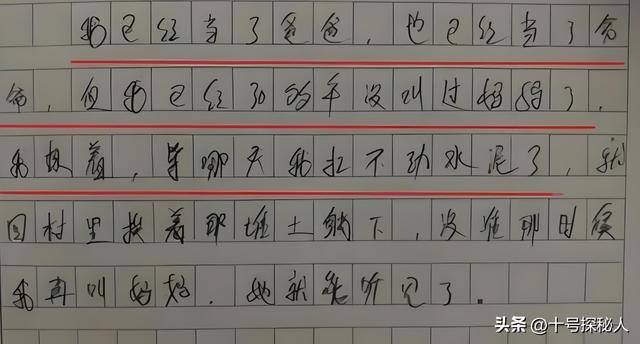 我已经当了爸爸，也已经当了爷
爷，但我已经30年没叫过妈妈了。
我想着，等哪天我扛不动水泥了，就
回村里挨着那堆土躺下，没准那时候
我再叫妈妈，她就能听见了。
头条 @十号探秘人